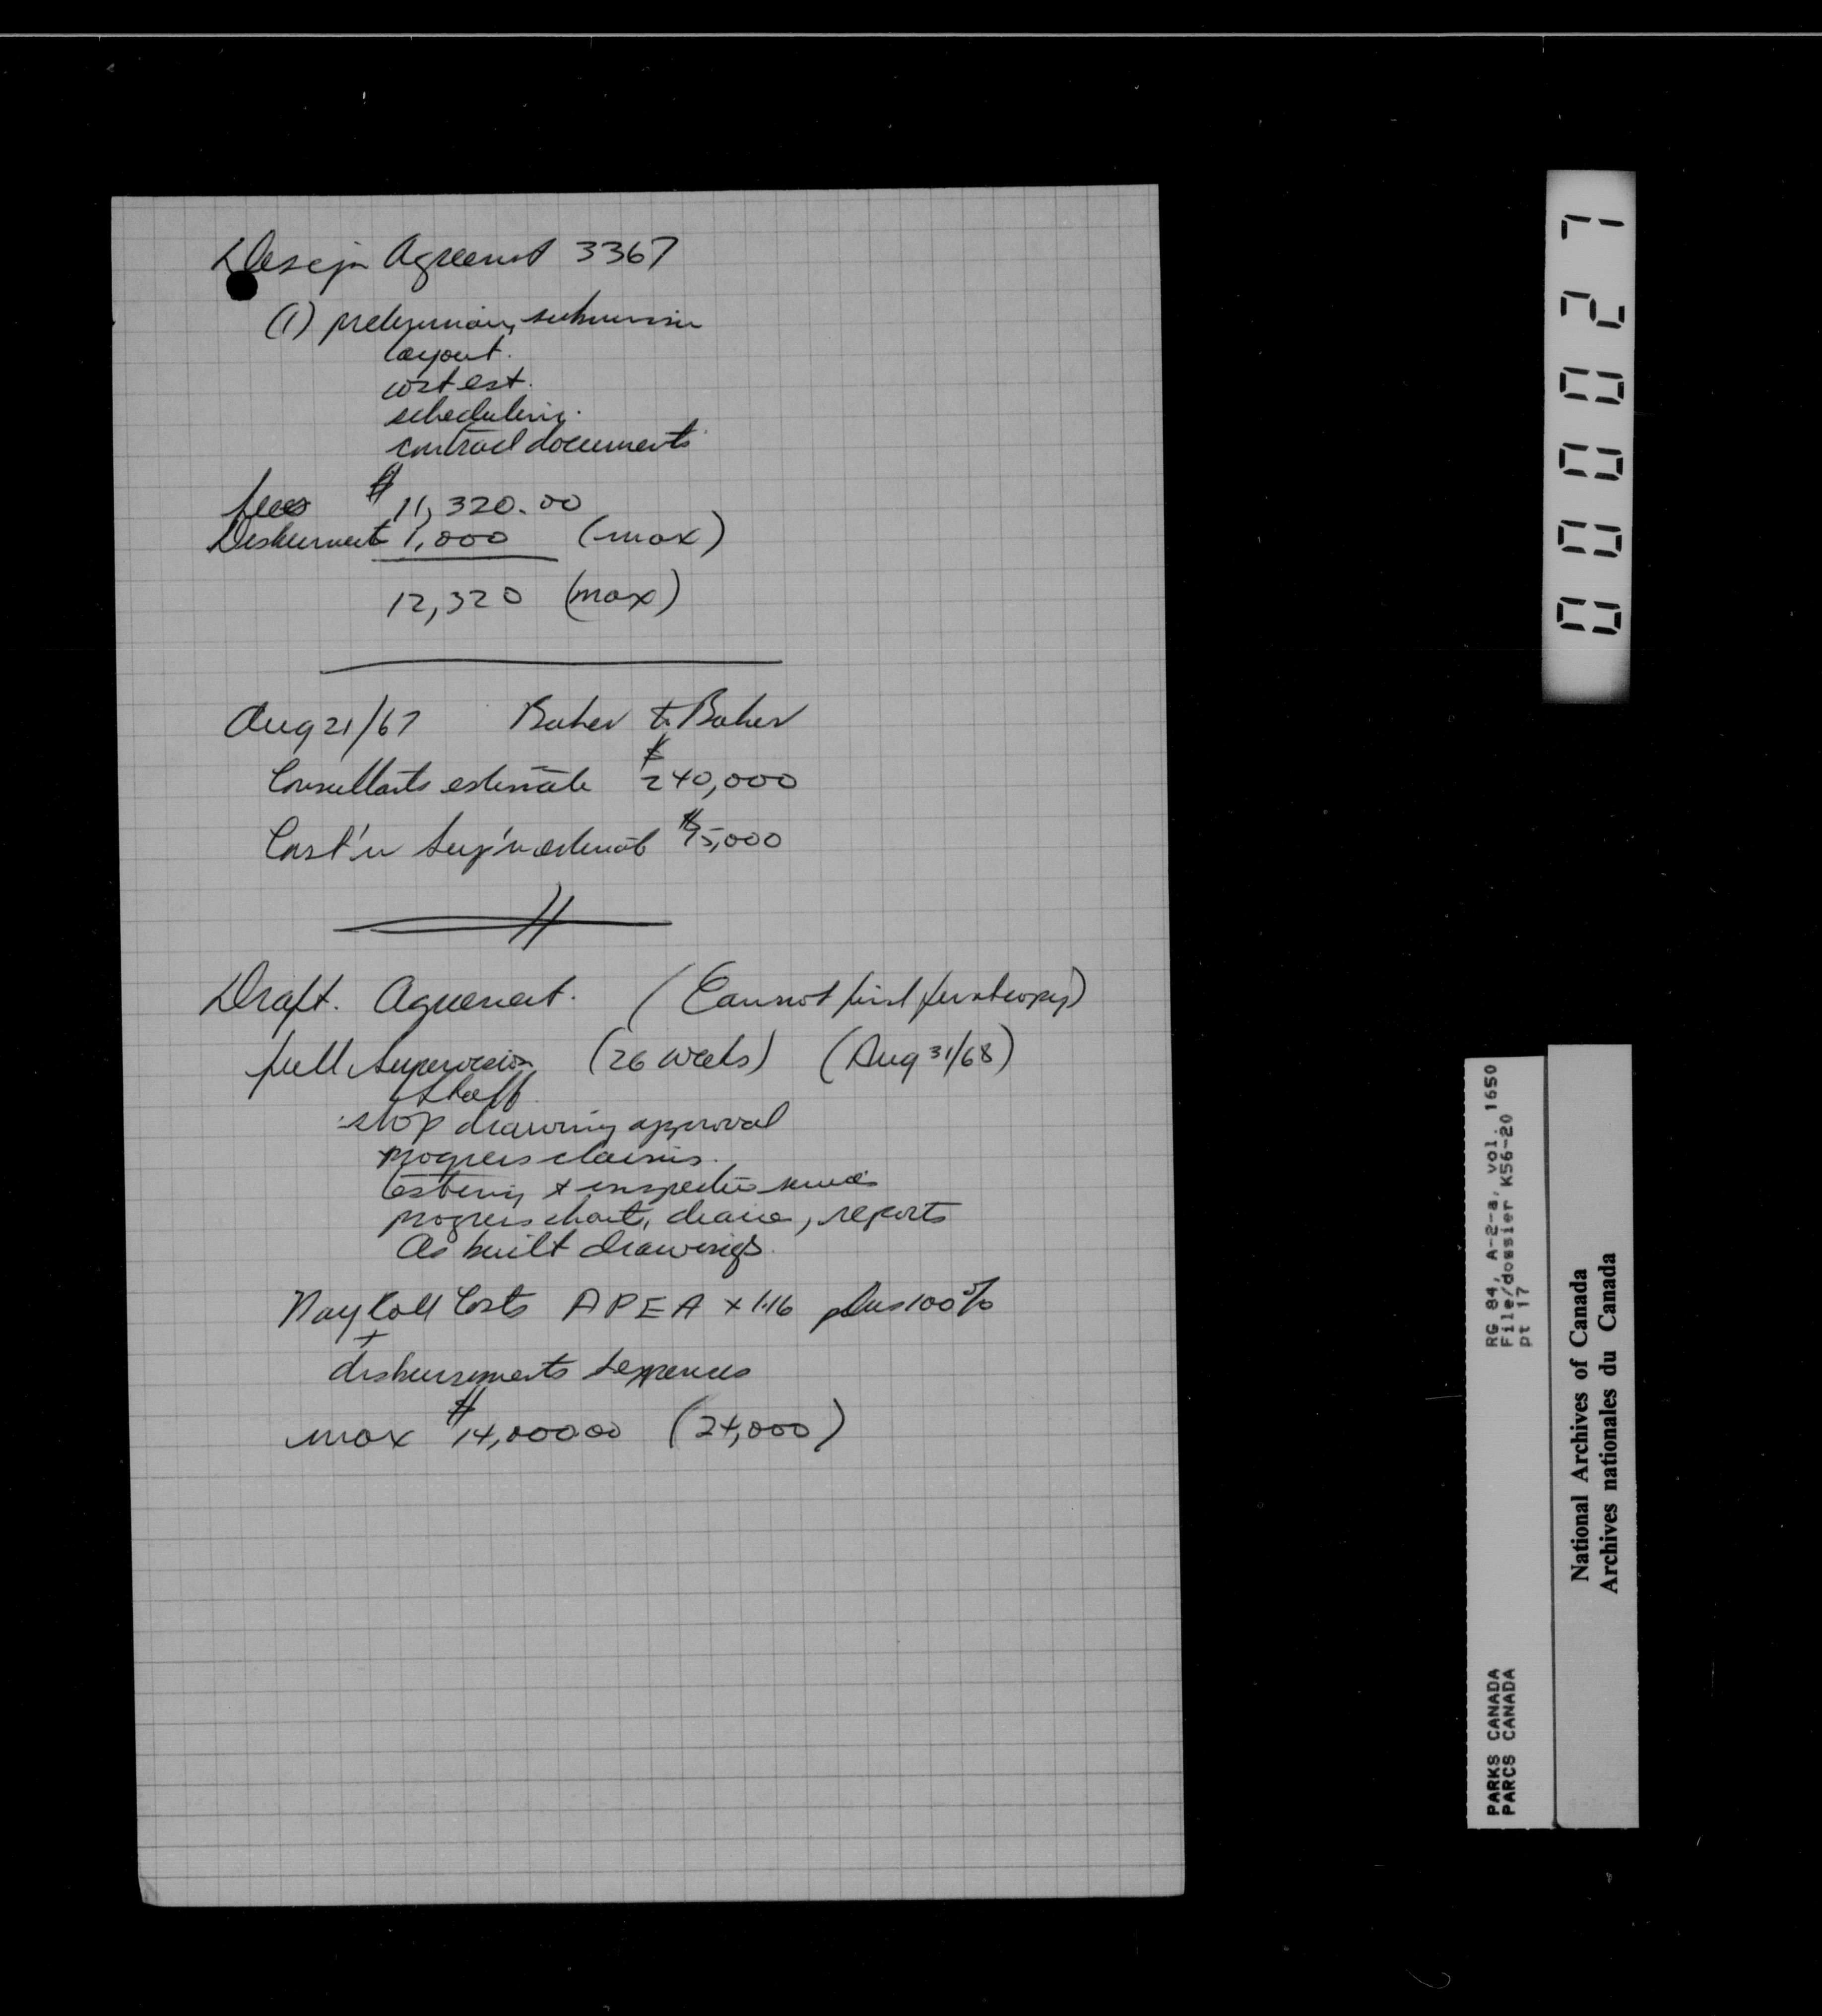 Design Agreement 3367
(1) preliminary submission
layout.
cost est.
scheduling.
contract documents
fees $ 11,320.00
Disbursment 1,000 (max)
12,320 (max)
Aug 21/67
Consultants estimate $ 240,000
estimate
Draft. Agreement. (Cannot find final copy)
full supervision (26 weeks) (Aug 31/68)
staff
shop drawing approval
progress claims.
testing + inspection
progress chart, , reports
As built drawings.
Payroll Costs APEA x 1.16 plus 100%
+
disbursements & expenses
max $ 14,000.00 (24,000)
0000027
PARKS CANADA RG 84, A-2-a, vol. 1650
PARCS CANADA File/dossier K56-20
pt 17
National Archives of Canada
Archives nationales du Canada